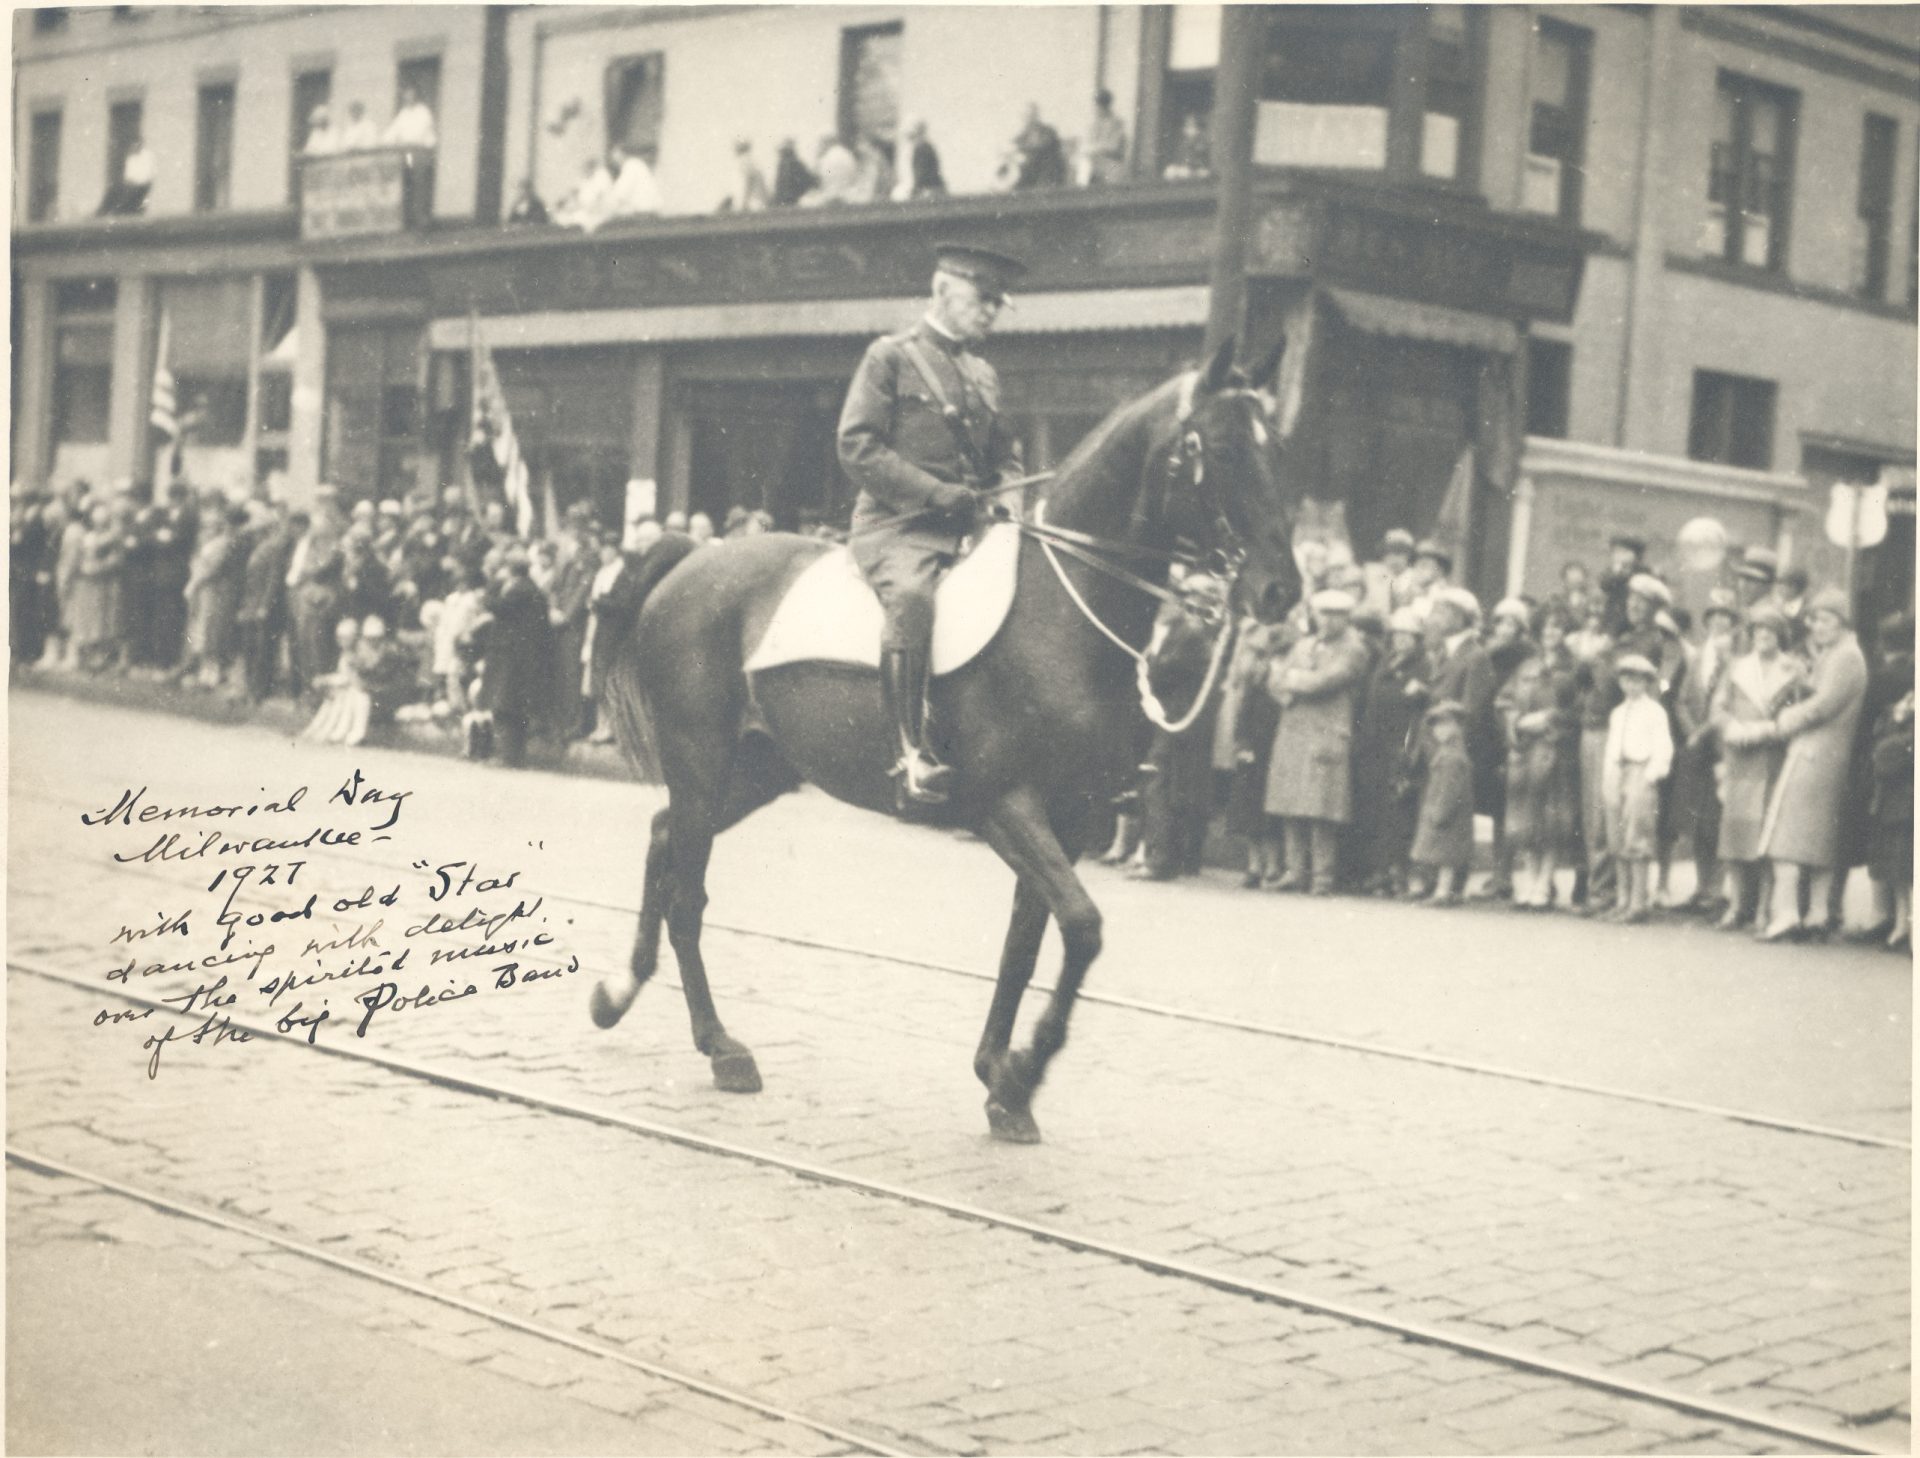 Memorial Day
Milwaukee -
1927
with good old "Star"
dancing with delight
over the spirited music
of the big Police Band